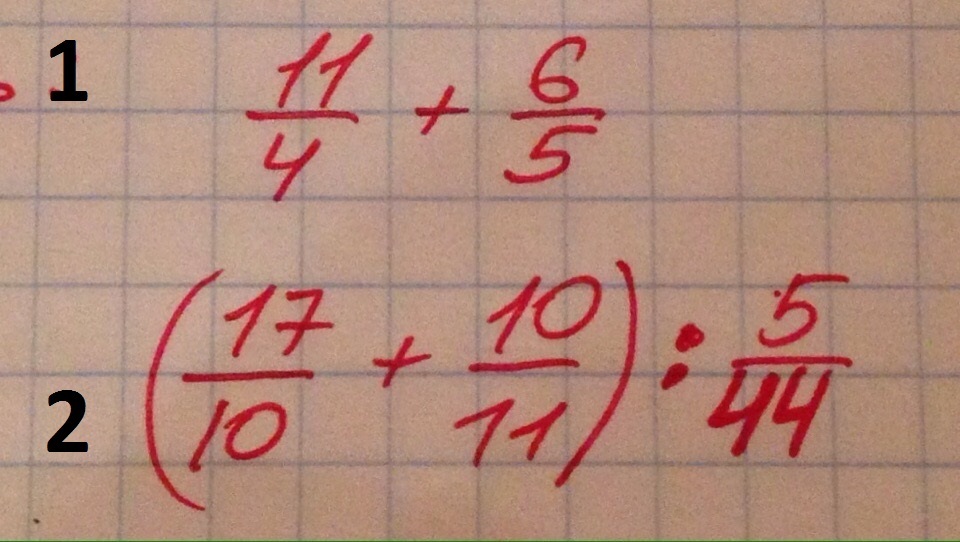 1 11/4 + 6/5
2 (17/10 + 10/11) : 5/44